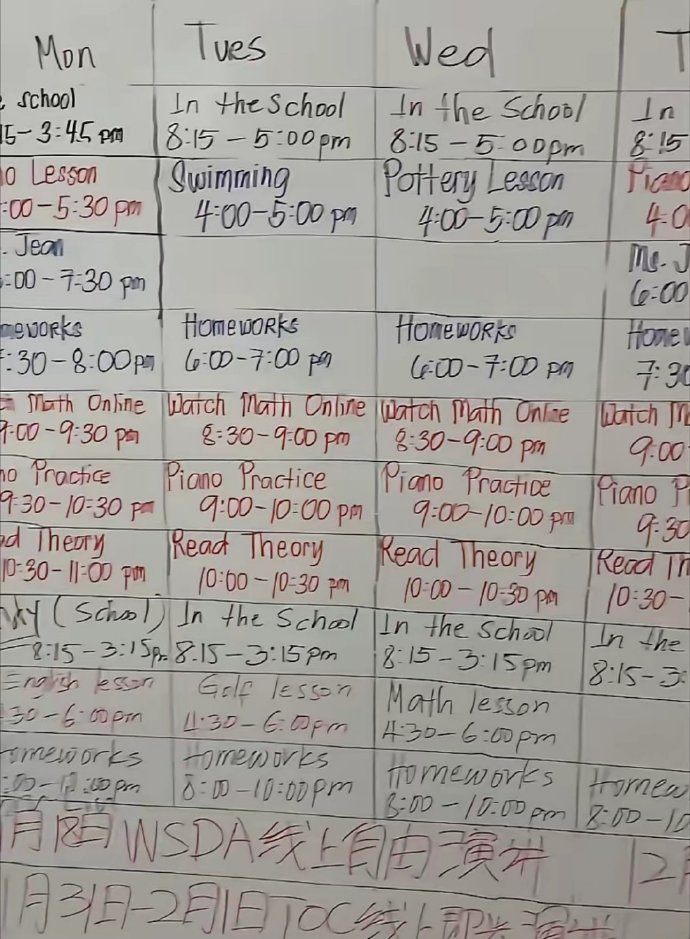 Mon Tues Wed T
school In the School In the School In
15-3:45 pm 8:15-5:00pm 8:15-5:00pm 8:15
o Lesson Swimming Pottery Lesson Piano
:00-5:30 pm 4:00-5:00 pm 4:00-5:00 pm 4:0
. Jean Ms. J
:00-7:30 pm 6:00
meworks Homeworks Homeworks Home
:30-8:00pm 6:00-7:00 pm 6:00-7:00 pm 7:30
Math Online Watch Math Online Watch Math Online Watch M
9:00-9:30 pm 8:30-9:00 pm 8:30-9:00 pm 9:00
no Practice Piano Practice Piano Practice Piano P
9:30-10:30 pm 9:00-10:00 pm 9:00-10:00 pm 9:30
ad Theory Read Theory Read Theory Read Th
10:30-11:00 pm 10:00-10:30 pm 10:00-10:30 pm 10:30-
(School) In the School In the School In the
8:15-3:15pm 8:15-3:15pm 8:15-3:15pm 8:15-3:
English lesson Golf lesson Math lesson
30-6:00pm 4:30-6:00pm 4:30-6:00pm
omeworks Homeworks Homeworks Homew
:00-10:00pm 8:00-10:00pm 8:00-10:00pm 8:00-10
月18日WSDA线上自由演讲 12月
1月31日-2月1日TOC线上即兴演讲